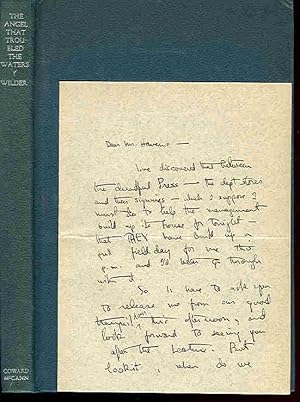 THE
ANGEL
THAT
TROU-
BLED
THE
WATERS
WILDER
COWARD
MCCANN
Dear Mr.
I've discovered that between
the dreadful Press — the dept-stores
and their signings — which I suppose I
must do to help the management
build up its house for tonight —
that THEY have built up a
full field day for me this
p.m. and I'd better go through
with it.
So I have to ask you
to release me from our good
this afternoon, and
look forward to seeing you
after the lecture. But
look it, when do we